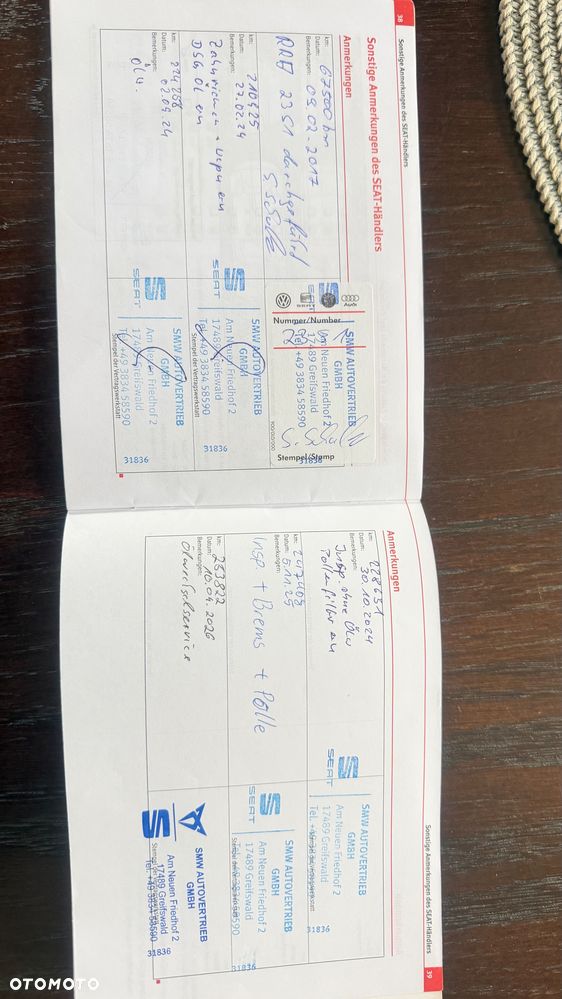 38
Sonstige Anmerkungen des SEAT-Händlers
Sonstige Anmerkungen des SEAT-Händlers
Anmerkungen
km: 67500 km
Datum: 09.02.2017
Bemerkungen:
RRA 23G1 durchgeführt
SEAT
Audi
Nummer/Number
SMW AUTOVERTRIEB
GMBH
Am Neuen Friedhof 2
17489 Greifswald
Tel. +49 3834 58590
Stempel/Stamp
31836
km: 210925
Datum: 27.02.24
Bemerkungen:
Zahnriemen + Wapu ern
DSG Öl ern
SEAT
SMW AUTOVERTRIEB
GMBH
Am Neuen Friedhof 2
17489 Greifswald
Tel. +49 3834 58590
Stempel der Vertragswerkstatt
31836
km: 224288
Datum: 02.09.24
Bemerkungen:
Ölw.
SEAT
SMW AUTOVERTRIEB
GMBH
Am Neuen Friedhof 2
17489 Greifswald
Tel. +49 3834 58590
Stempel der Vertragswerkstatt
31836
Sonstige Anmerkungen des SEAT-Händlers
39
Anmerkungen
km: 228631
Datum: 30.10.2024
Bemerkungen:
Insp. ohne Ölw
Pollenfilter ern
SEAT
SMW AUTOVERTRIEB
GMBH
Am Neuen Friedhof 2
17489 Greifswald
Tel. +49 3834 58590
31836
km: 247403
Datum: 5.11.25
Bemerkungen:
Insp + Brems + Polle
SEAT
SMW AUTOVERTRIEB
GMBH
Am Neuen Friedhof 2
17489 Greifswald
31836
km: 253822
Datum: 10.04.2026
Bemerkungen:
Ölwechselservice
SMW AUTOVERTRIEB
GMBH
Am Neuen Friedhof 2
17489 Greifswald
Tel. +49 3834 58590
31836
OTOMOTO